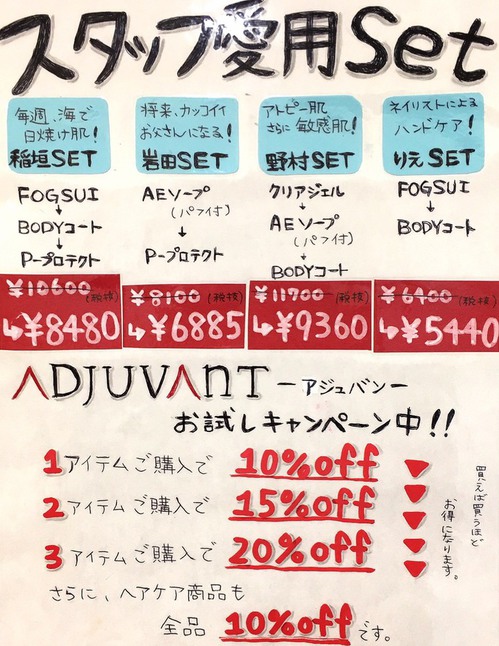 スタッフ愛用Set
毎週、海で
日焼け肌！
稲垣SET
FOGSUI
↓
BODYコート
↓
P-プロテクト
¥10600(税抜)
↳¥8480
将来、カッコイイ
お父さんになる！
岩田SET
AEソープ
(パフ付)
↓
P-プロテクト
¥8100(税抜)
↳¥6885
アトピー肌
さらに敏感肌！
野村SET
クリアジェル
↓
AEソープ
(パフ付)
↓
BODYコート
¥11700(税抜)
↳¥9360
ネイリストによる
ハンドケア！
りえSET
FOGSUI
↓
BODYコート
¥6400(税抜)
↳¥5440
ADJUVANT －アジュバン－
お試しキャンペーン中！！
1アイテムご購入で 10%off
2アイテムご購入で 15%off
3アイテムご購入で 20%off
買えば買うほど
お得になります。
さらに、ヘアケア商品も
全品 10%offです。